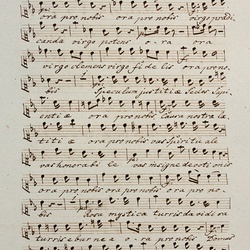 ora pro nobis ora pro nobis virgo prædi
canda virgo potens ora ora
virgo clemens virgo fidelis ora pro no
bis Speculum justitiæ Sedes Sapi
entiæ ora pro nobis Causa nostræ læ
titiæ ora pro nobis vas Spirituale
vas honorabile vas insigne devotionis
ora pro nobis ora pro nobis ora pro no
bis Rosa mystica turris davidica
turris eburnea ora pro nobis Domus